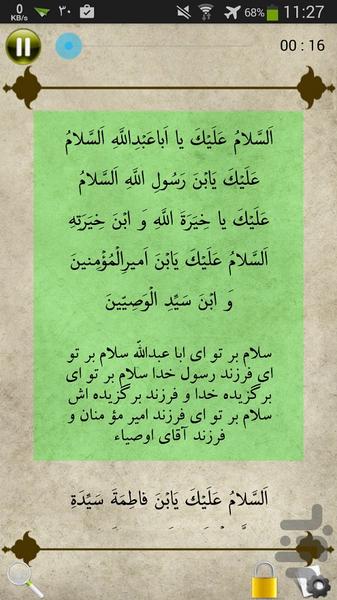 0
KB/s
۳۰
68%
11:27
00 : 16
اَلسَّلامُ عَلَيْكَ يا اَباعَبْدِاللَّهِ اَلسَّلامُ
عَلَيْكَ يَابْنَ رَسُولِ اللَّهِ اَلسَّلامُ
عَلَيْكَ يا خِيَرَةَ اللَّهِ وَ ابْنَ خِيَرَتِهِ
اَلسَّلامُ عَلَيْكَ يَابْنَ اَميرِالْمُؤْمِنينَ
وَ ابْنَ سَيِّدِ الْوَصِيّينَ
سلام بر تو ای ابا عبدالله سلام بر تو
ای فرزند رسول خدا سلام بر تو ای
برگزیده خدا و فرزند برگزیده اش
سلام بر تو ای فرزند امیر مؤ منان و
فرزند آقای اوصیاء
اَلسَّلامُ عَلَيْكَ يَابْنَ فاطِمَةَ سَيِّدَةِ
بازار